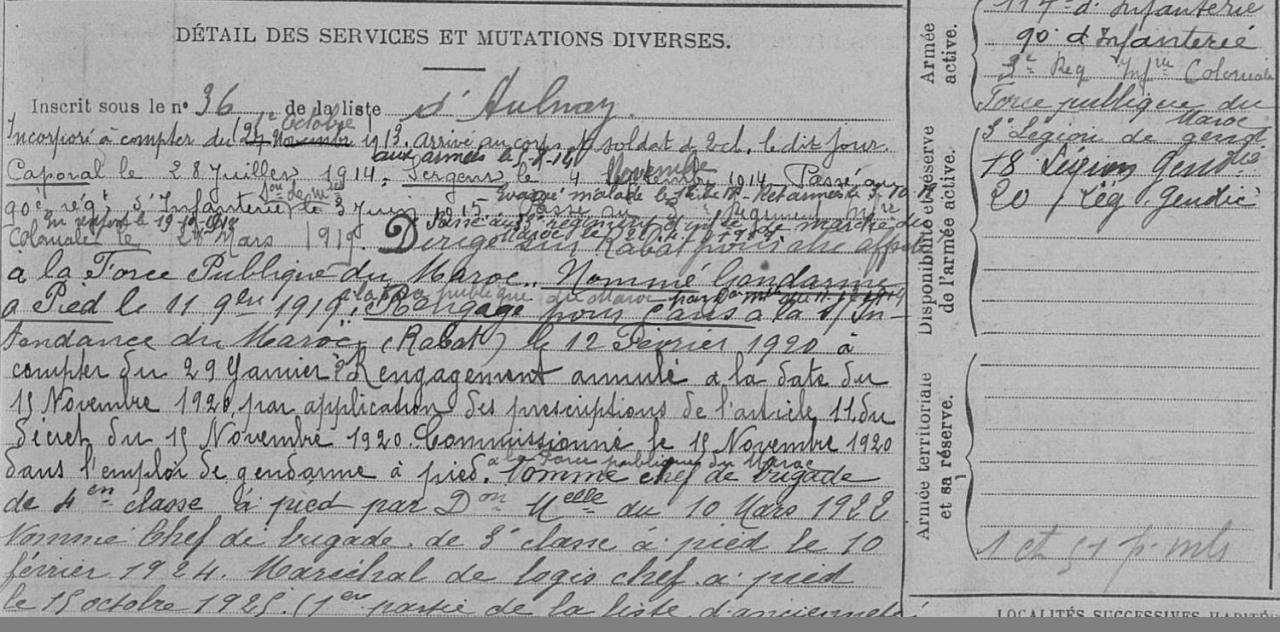 DÉTAIL DES SERVICES ET MUTATIONS DIVERSES.
Inscrit sous le n° 36 de la liste d'Aulnay.
1er Octobre
Incorporé à compter du 27 Novembre 1913, arrivé au corps & soldat de 2e cl. le dit jour.
aux armées le
Novembre
Caporal le 28 Juillet 1914. Sergent le 4 1914. Passé au
Evacué malade
90e régt d'Infanterie le 3 Juin 1915.
Coloniale le 2 Mars 1919. Dirigé sur Rabat pour être affecté
à la Force Publique du Maroc. Nommé Gendarme
à la Force publique du Maroc par
à Pied le 11 9bre 1919. Rengagé pour 2 ans à la S/In-
tendance du Maroc (Rabat) le 12 Février 1920 à
compter du 29 Janvier Rengagement annulé à la date du
15 Novembre 1920, par application des prescriptions de l'article 11 du
décret du 15 Novembre 1920. Commissionné le 15 Novembre 1920
à la Force publique du Maroc
dans l'emploi de gendarme à pied. Nommé chef de brigade
de 4en classe à pied par Don Melle du 10 Mars 1922
Nommé Chef de brigade de 3e classe à pied le 10
février 1924. Maréchal de logis chef à pied
le 15 octobre 1925. (1ere partie de la liste d'ancienneté
Armée active.
117e d'Infanterie
90e d'Infanterie
3e Reg Infrie Coloniale
Force publique du Maroc
Disponibilité et Réserve de l'armée active.
3e Légion de gend.
18 Légion Gendie
20 Lég. Gendie
Armée territoriale et sa réserve.
1 et 51 p. mls
LOCALITÉS SUCCESSIVES HABITÉES